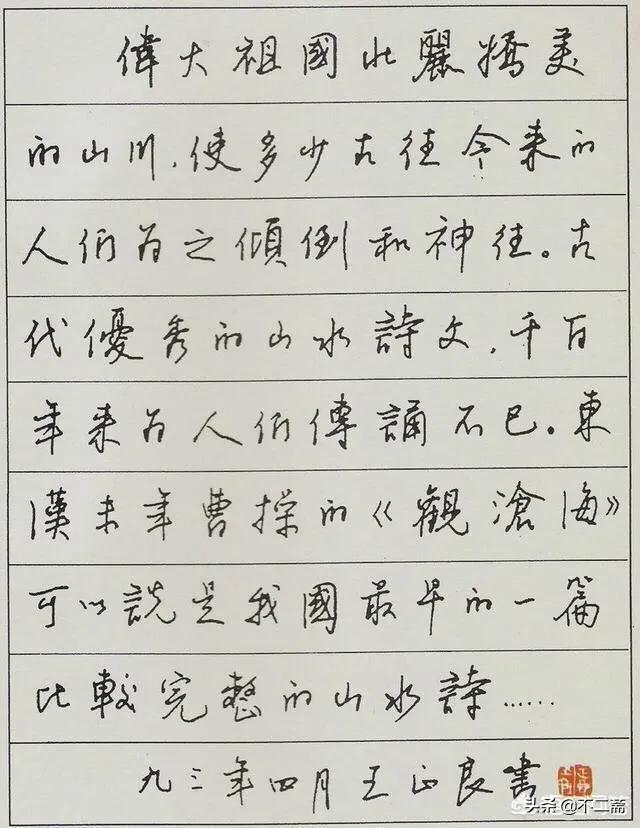 偉大祖國壯麗嬌美
的山川，使多少古往今来的
人们为之傾倒和神往。古
代優秀的山水詩文，千百
年来为人们傳誦不已。東
漢末年曹操的《觀滄海》
可以説是我國最早的一篇
比較完整的山水詩……
九三年四月王正良書
头条@不二斋